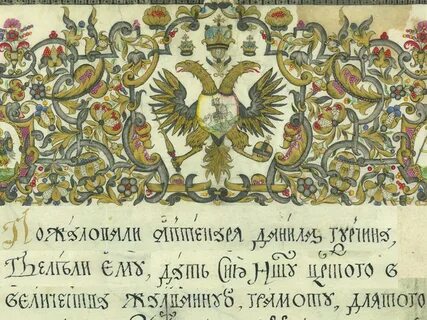 Пожаловали аптекаря данила гурчина,
Велѣли ему, дать сию Ншу црского в
величества жалованную, грамоту, длятого